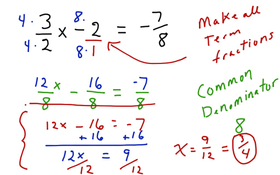 4· 3/4·2 x - 8· 2/8· 1 = -7/8
Make all
Term
fractions
12x/8 - 16/8 = -7/8
Common
Denominator
8
12x - 16 = -7
+16 +16
12x/12 = 9/12
x = 9/12 = 3/4